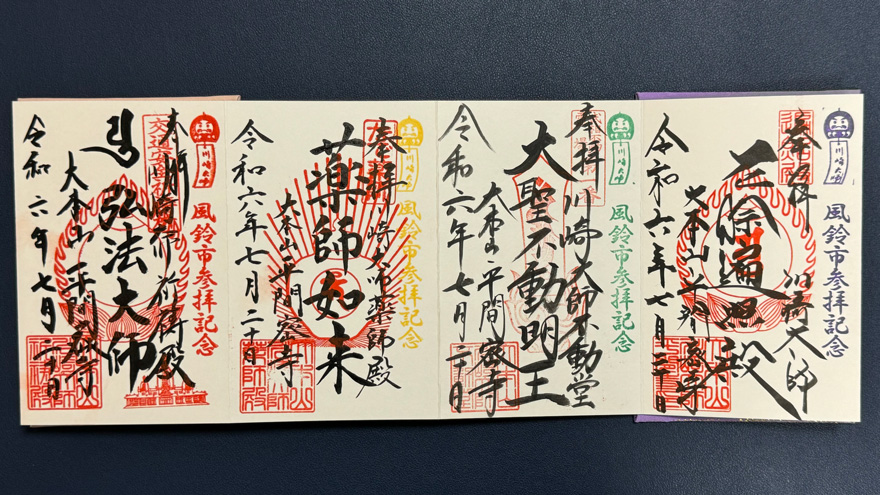 川崎大師
風鈴市参拝記念
奉拝
川崎大師
遍照殿
大本山平間寺
令和六年七月二十日
川崎大師
風鈴市参拝記念
奉拝
川崎大師不動堂
大聖不動明王
大本山平間寺
令和六年七月二十日
川崎大師
風鈴市参拝記念
奉拝
川崎大師薬師殿
薬師如来
大本山平間寺
令和六年七月二十日
川崎大師
風鈴市参拝記念
奉拝
祈祷殿
弘法大師
大本山平間寺
令和六年七月二十日